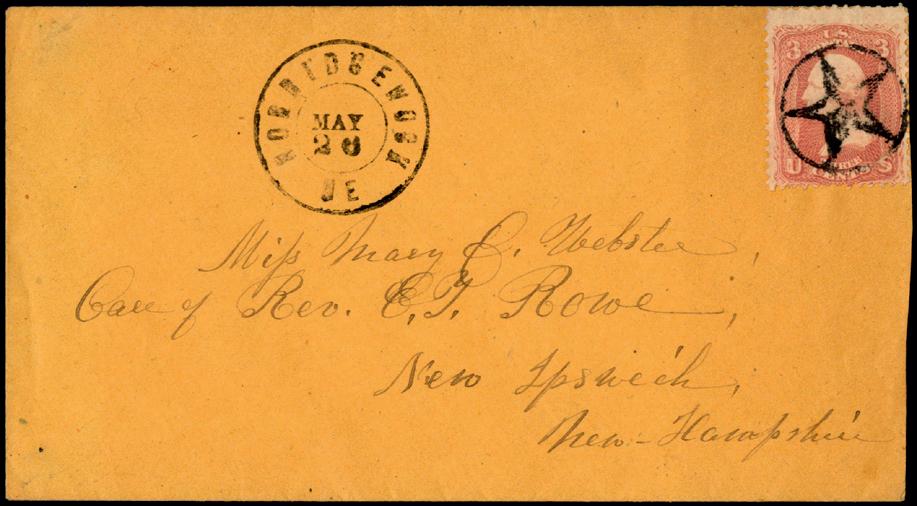 NORRIDGEWOCK
MAY
26
ME
3 U.S. 3
U THREE CENTS S
Miss Mary C. Webster,
Care of Rev. E. T. Rowe,
New Ipswich,
New-Hampshire